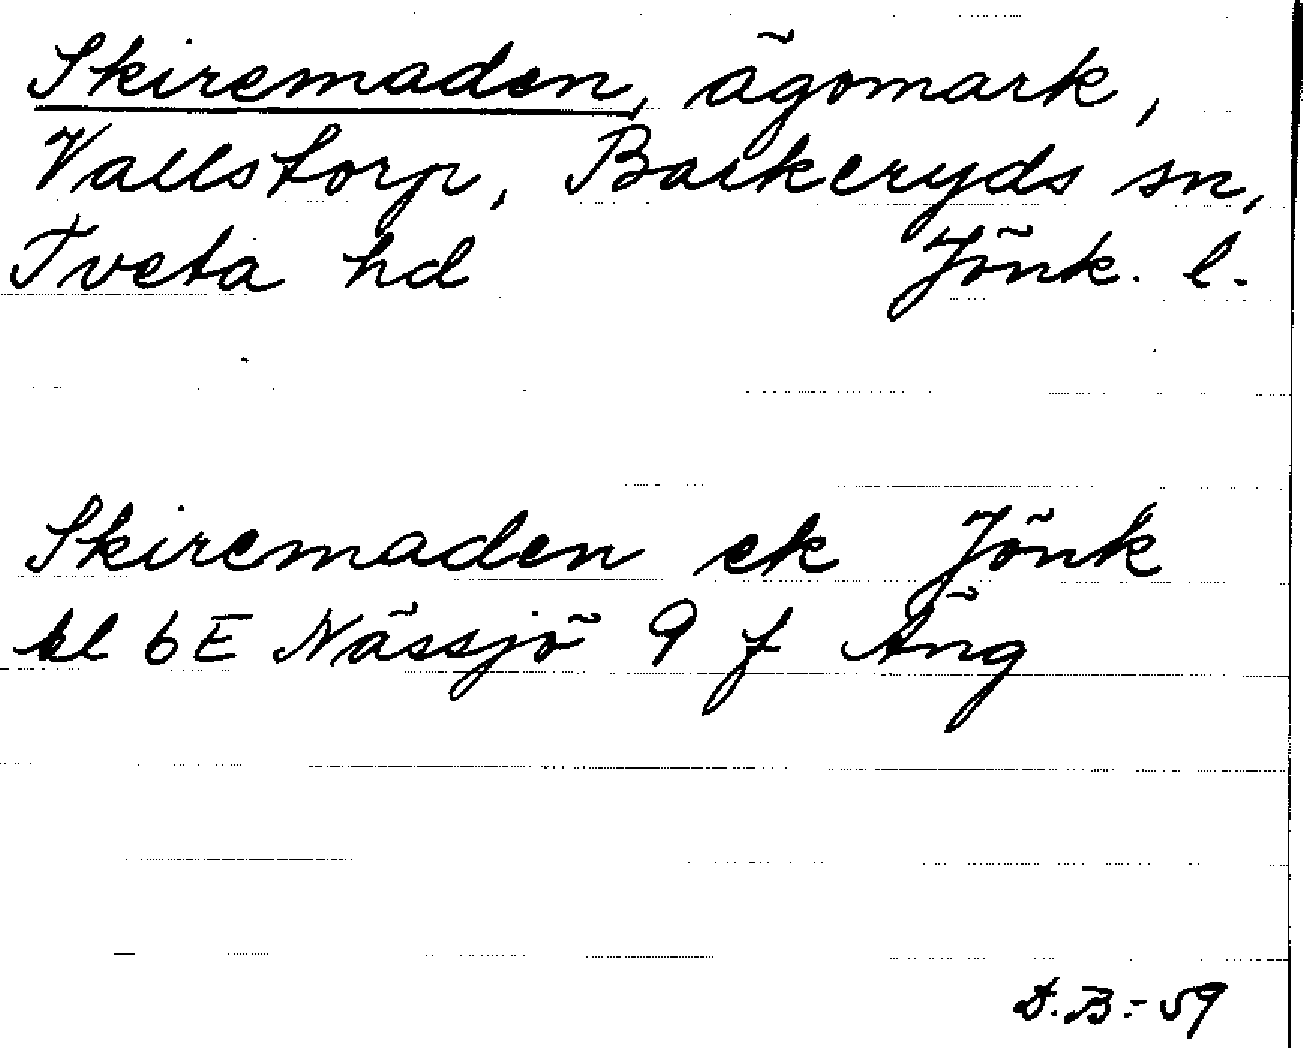 Skiremaden, ägomark,
Vallstorp, Barkeryds sn,
Tveta hd Jönk. l.
Skiremaden ek Jönk
bl 6E Nässjö 9 f Äng
D.B. 59